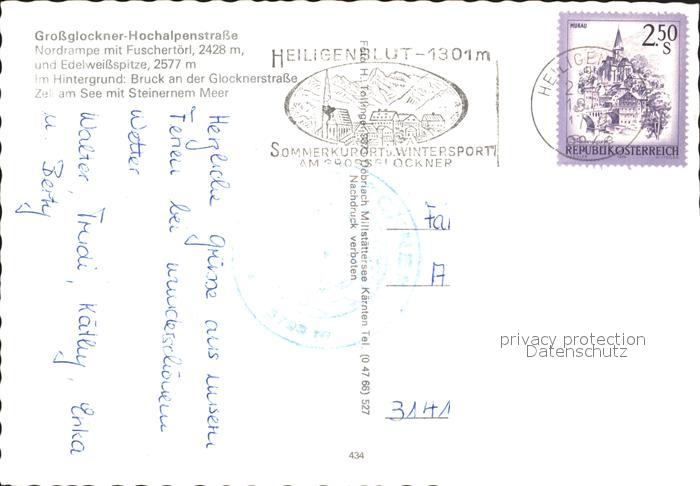 Großglockner-Hochalpenstraße
Nordrampe mit Fuschertörl, 2428 m,
und Edelweißspitze, 2577 m
Im Hintergrund: Bruck an der Glocknerstraße
Zell am See mit Steinernem Meer
HEILIGENBLUT-1301m
SOMMERKURORT u. WINTERSPORT
AM GROSSGLOCKNER
HEILIGEN
MURAU
2.50
S
REPUBLIK ÖSTERREICH
Herzliche Grüsse aus unsern
Ferien bei wunderschönem
Wetter
Walter, Trudi, Käthy, Erika
u. Berty
Döbriach Millstättersee Kärnten Tel. (0 47 66) 527
Nachdruck verboten
Fa
A
3141
privacy protection
Datenschutz
434